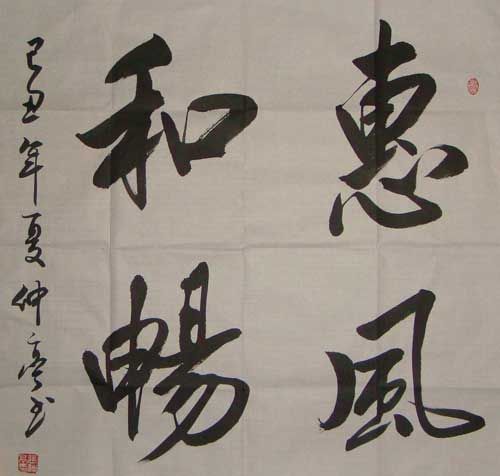 惠風
和暢
己丑年夏仲亭书